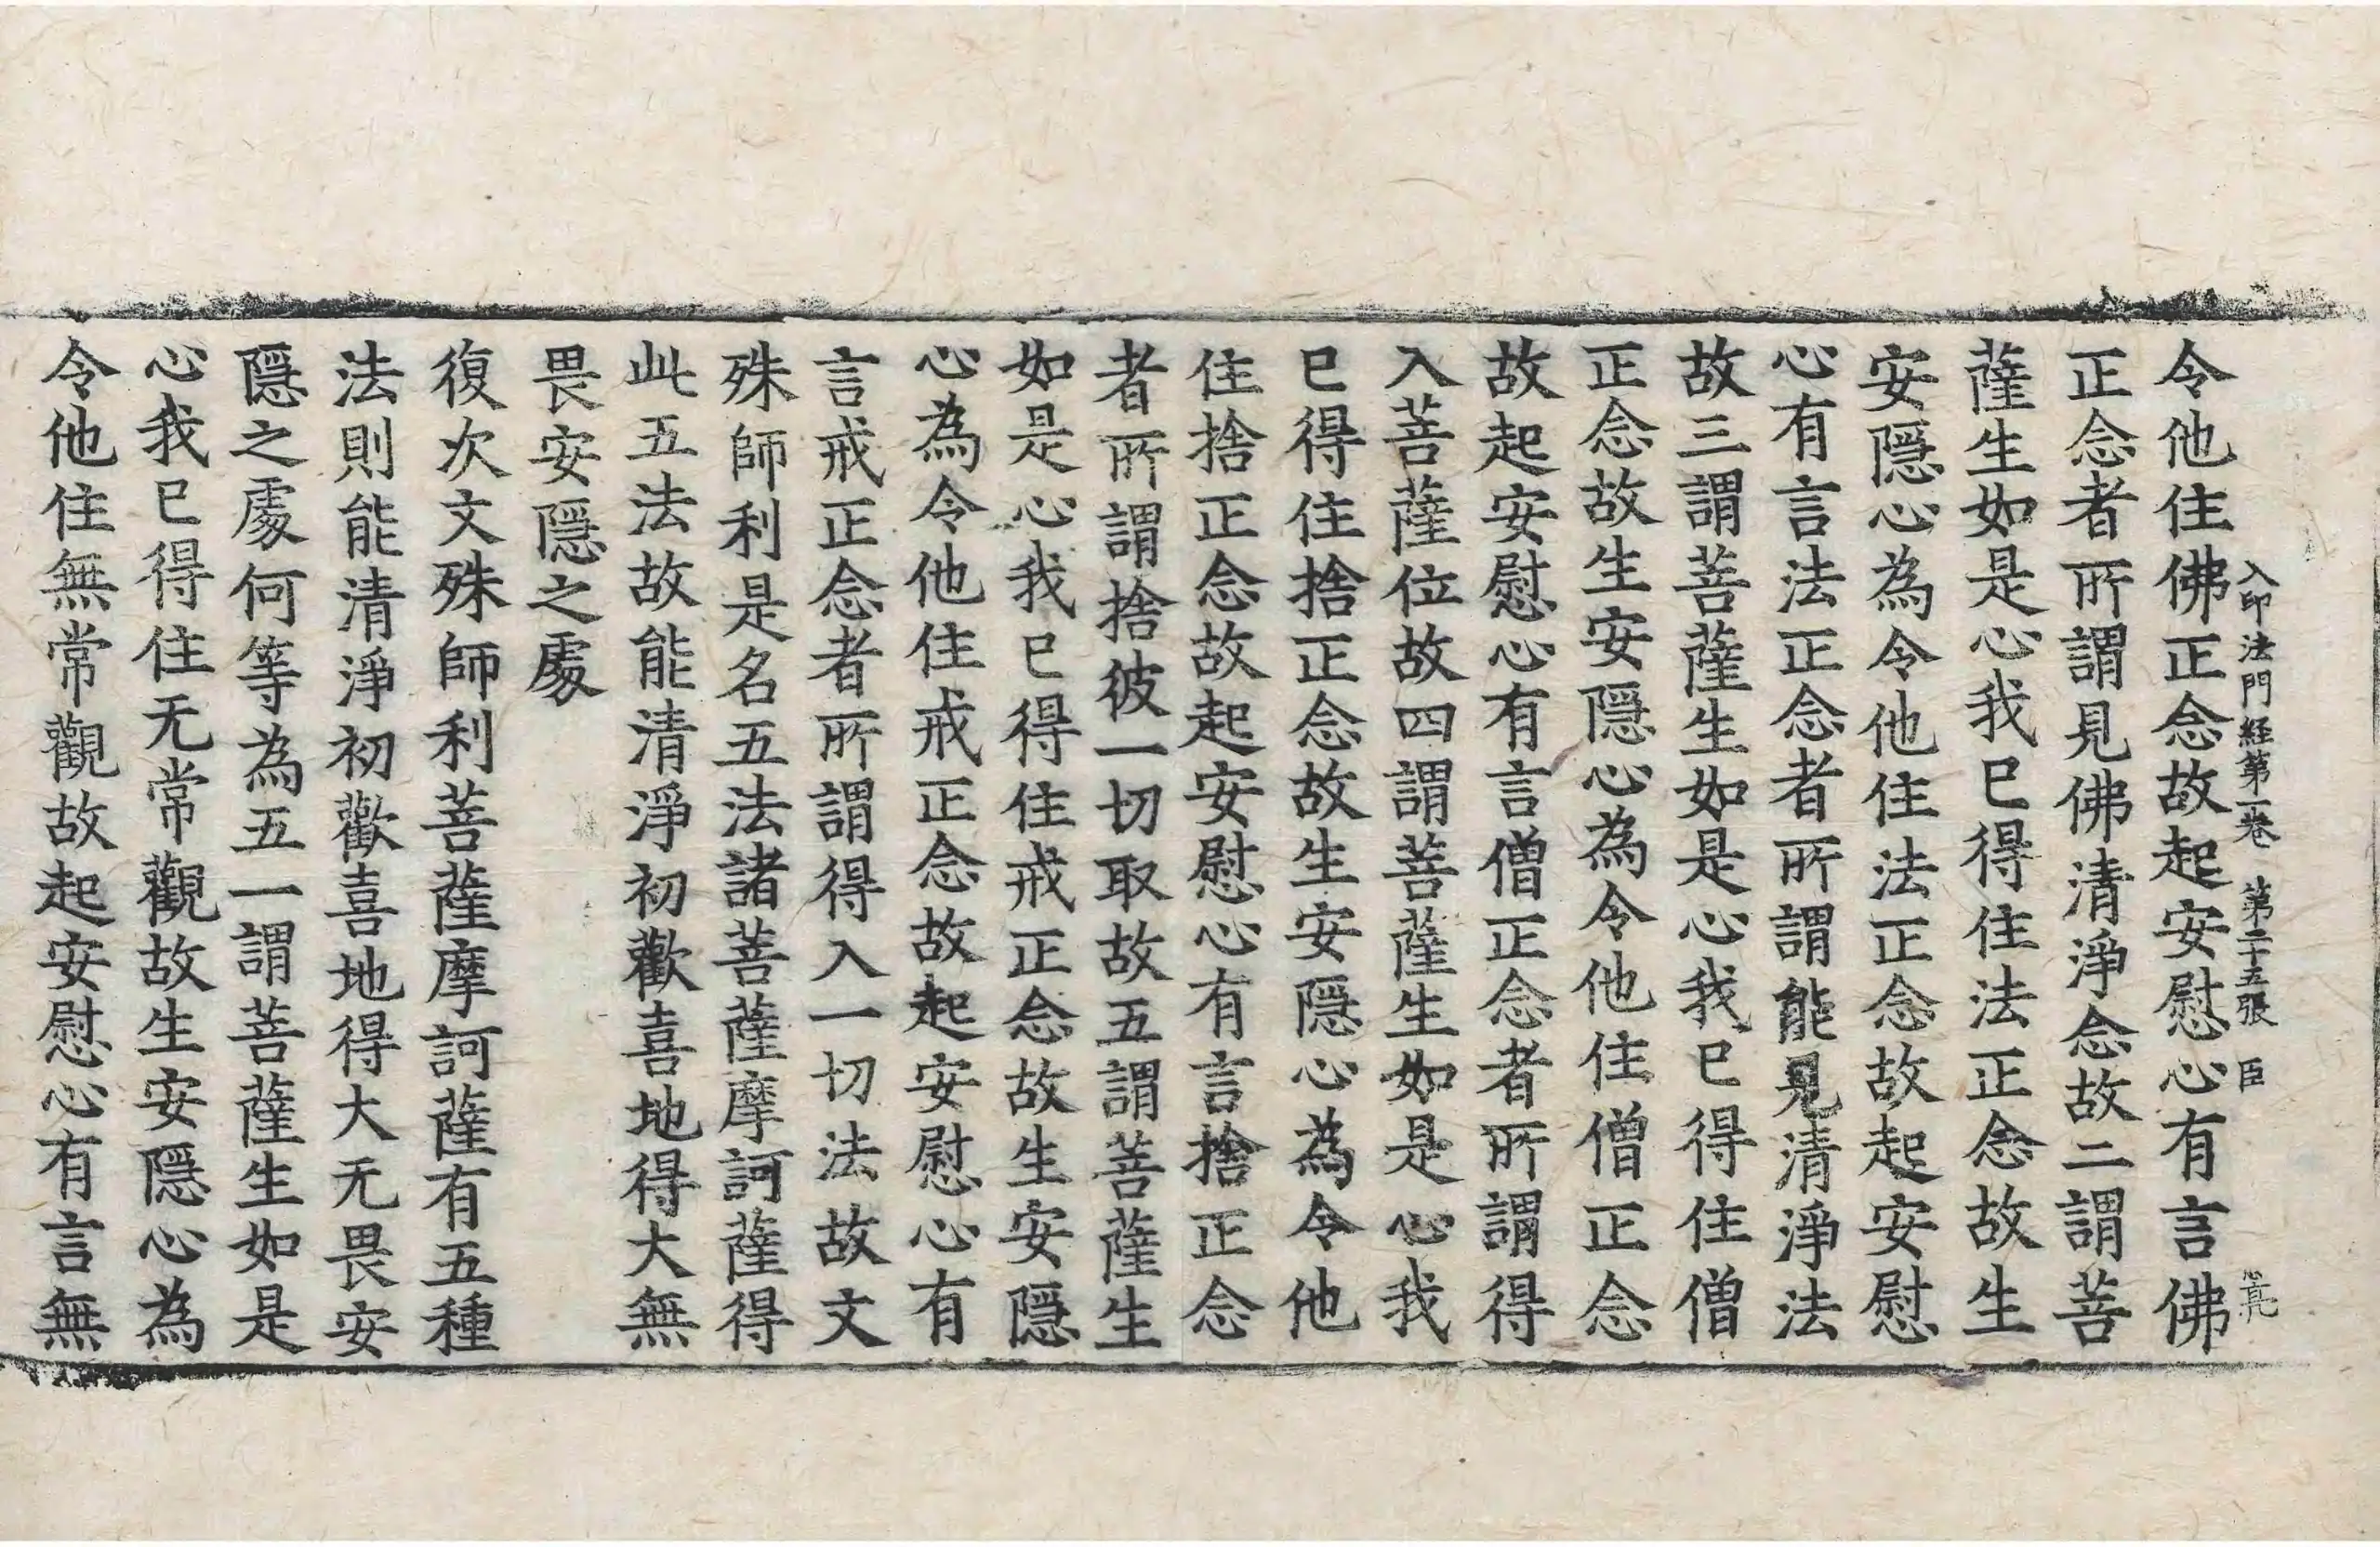 入印法門経第一卷 第二十五張 臣
令他住佛正念故起安慰心有言佛
正念者所謂見佛清淨念故二謂菩
薩生如是心我已得住法正念故生
安隱心為令他住法正念故起安慰
心有言法正念者所謂能見清淨法
故三謂菩薩生如是心我已得住僧
正念故生安隱心為令他住僧正念
故起安慰心有言僧正念者所謂得
入菩薩位故四謂菩薩生如是心我
已得住捨正念故生安隱心為令他
住捨正念故起安慰心有言捨正念
者所謂捨彼一切取故五謂菩薩生
如是心我已得住戒正念故生安隱
心為令他住戒正念故起安慰心有
言戒正念者所謂得入一切法故文
殊師利是名五法諸菩薩摩訶薩得
此五法故能清淨初歡喜地得大無
畏安隱之處
復次文殊師利菩薩摩訶薩有五種
法則能清淨初歡喜地得大无畏安
隱之處何等為五一謂菩薩生如是
心我已得住无常觀故生安隱心為
令他住無常觀故起安慰心有言無